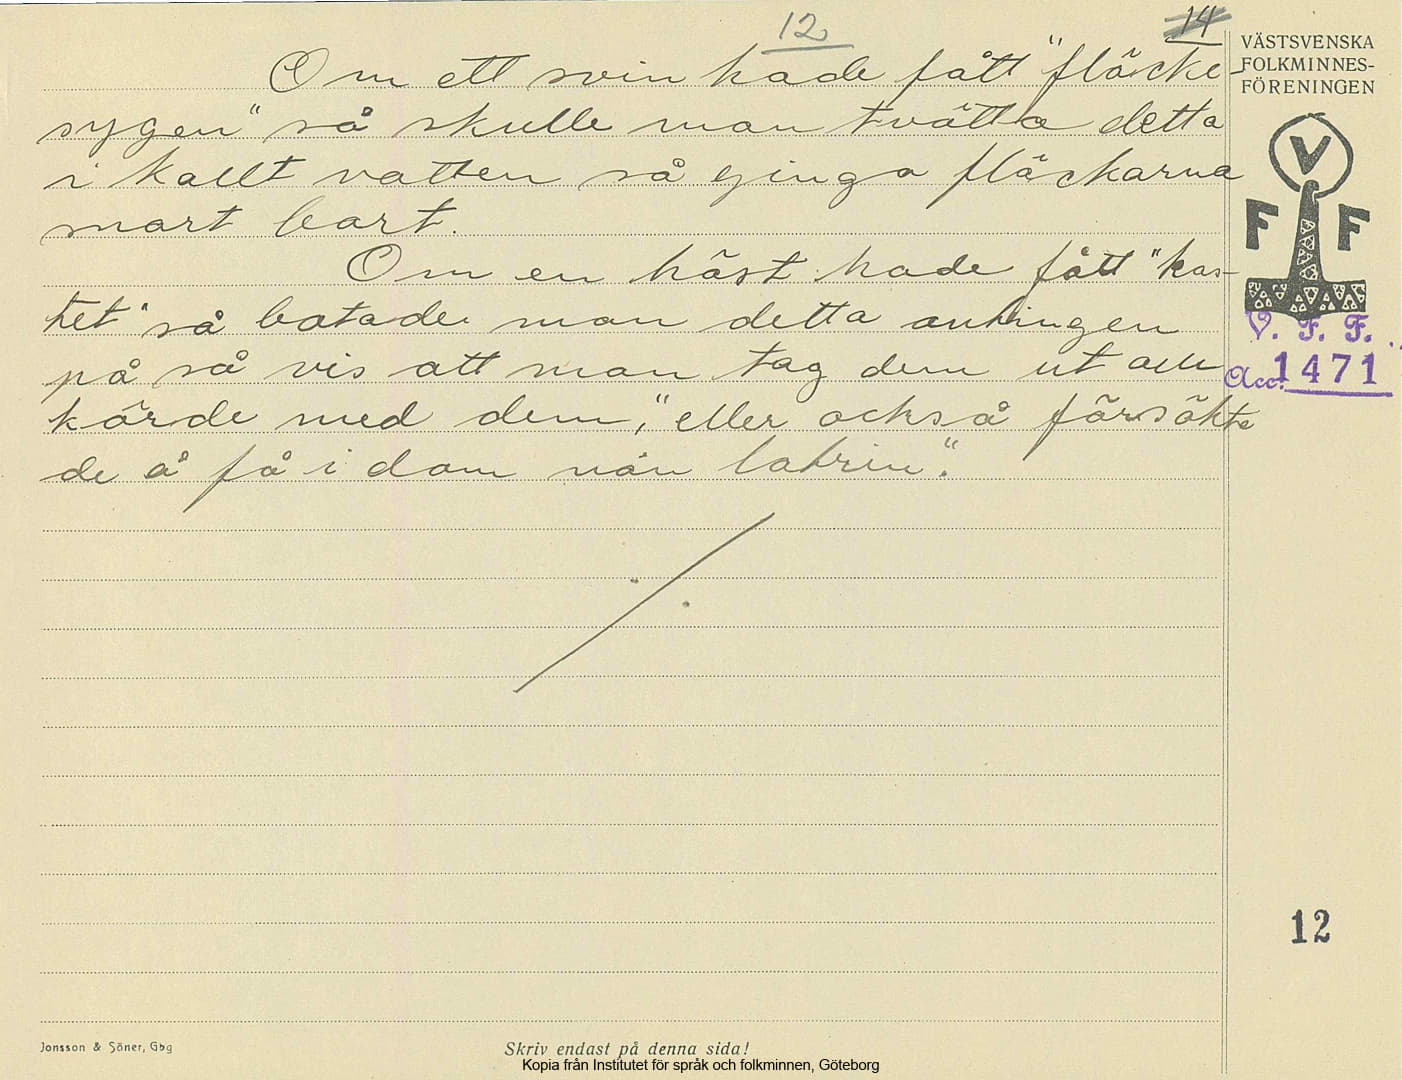 12
14
Om ett svin hade fått "fläcke-
sygen" så skulle man tvätta detta
i kallt vatten så ginga fläckarna
snart bort.
Om en häst hade fått "kas-
tet" så botade man detta antingen
på så vis att man "tag dem ut och
körde med dem," eller också försökte
de å få i dom nån latrin".
VÄSTSVENSKA
FOLKMINNES-
FÖRENINGEN
V
F F
V. F. F.
Acc. 1471
12
Jonsson & Söner, Gbg
Skriv endast på denna sida!
Kopia från Institutet för språk och folkminnen, Göteborg